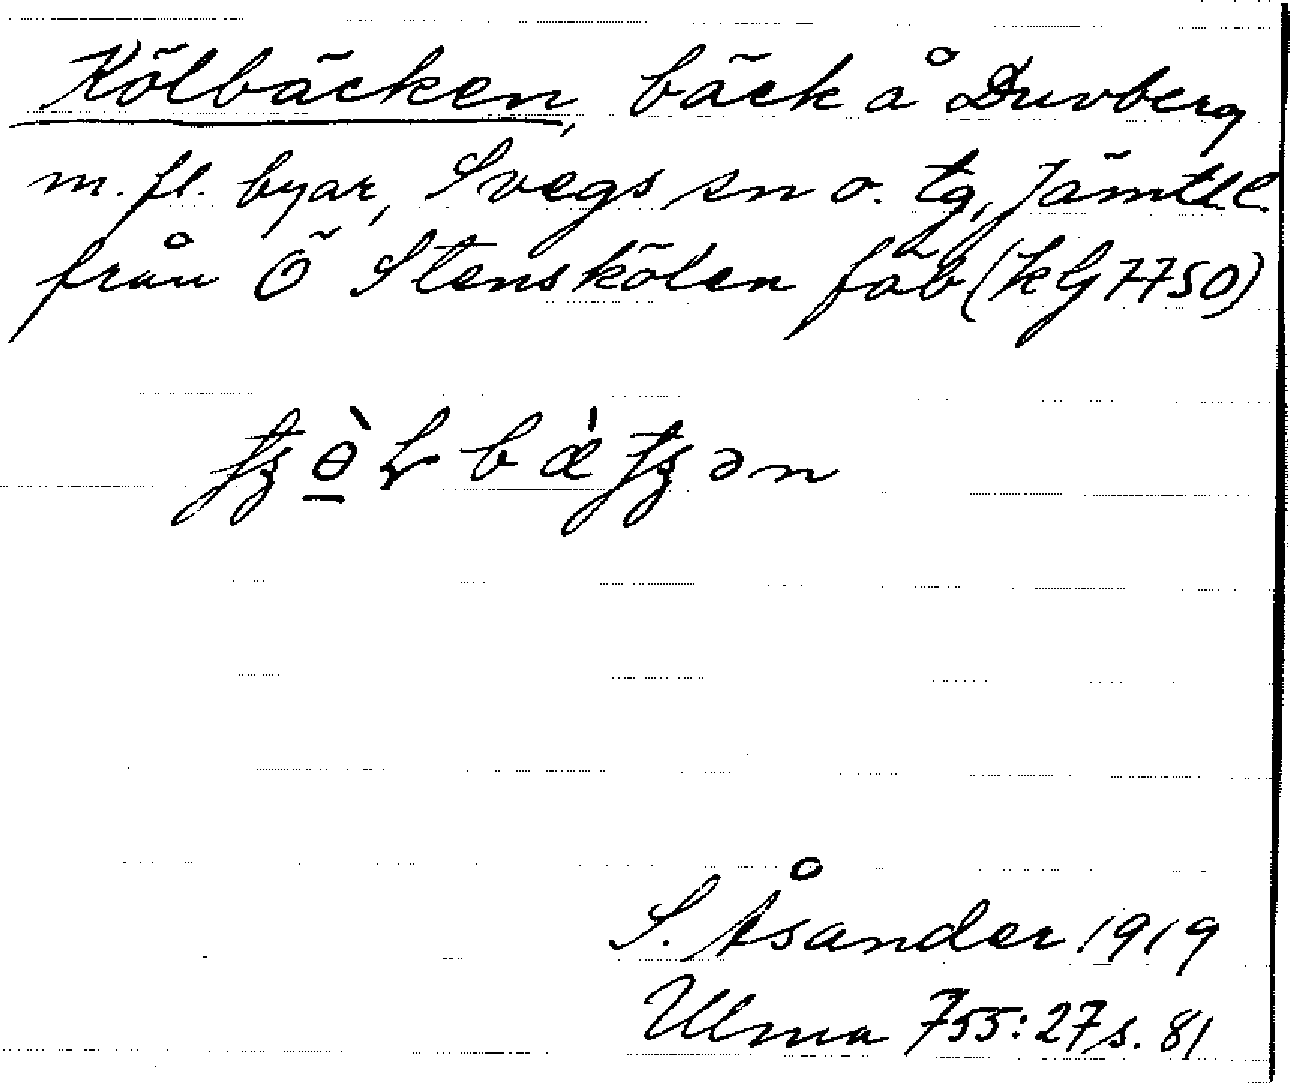 Kölbäcken, bäck å Duvberg
m. fl. byar, Svegs sn o. tg, Jämtl l.
från Ö Stenskölen fäb (kG 7750)
S. Åsander 1919
Ulma 755:27 s. 81